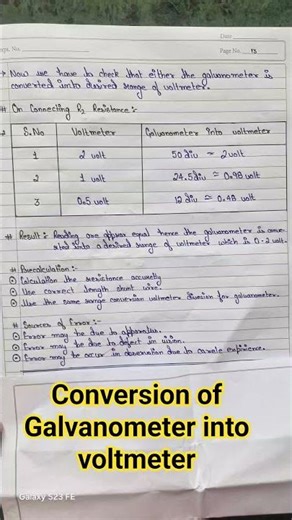 Date
Expt. No.
Page No. 13
→ Now we have to check that either the galvanometer is
converted into desired range of voltmeter.
# On Connecting R₂ Resistance :-
S.No Voltmeter Galvanometer Into voltmeter
1 2 volt 50 div ≈ 2 volt
2 1 volt 24.5 div ≈ 0.98 volt
3 0.5 volt 12 div ≈ 0.48 volt
# Result :- Reading are appear equal hence the galvanometer is conve-
rted into a desired range of voltmeter which is 0-2 volt.
# Precalculation :-
Calculation the resistance accuratly
Use correct length shunt wire.
Use the same range conversion voltmeter division for galvanometer.
# Sources of Error :-
Error may be due to apparatus.
Error may be due to defect in vision.
Error may be occur in observation due to
Conversion of
Galvanometer into
voltmeter
Galaxy S23 FE